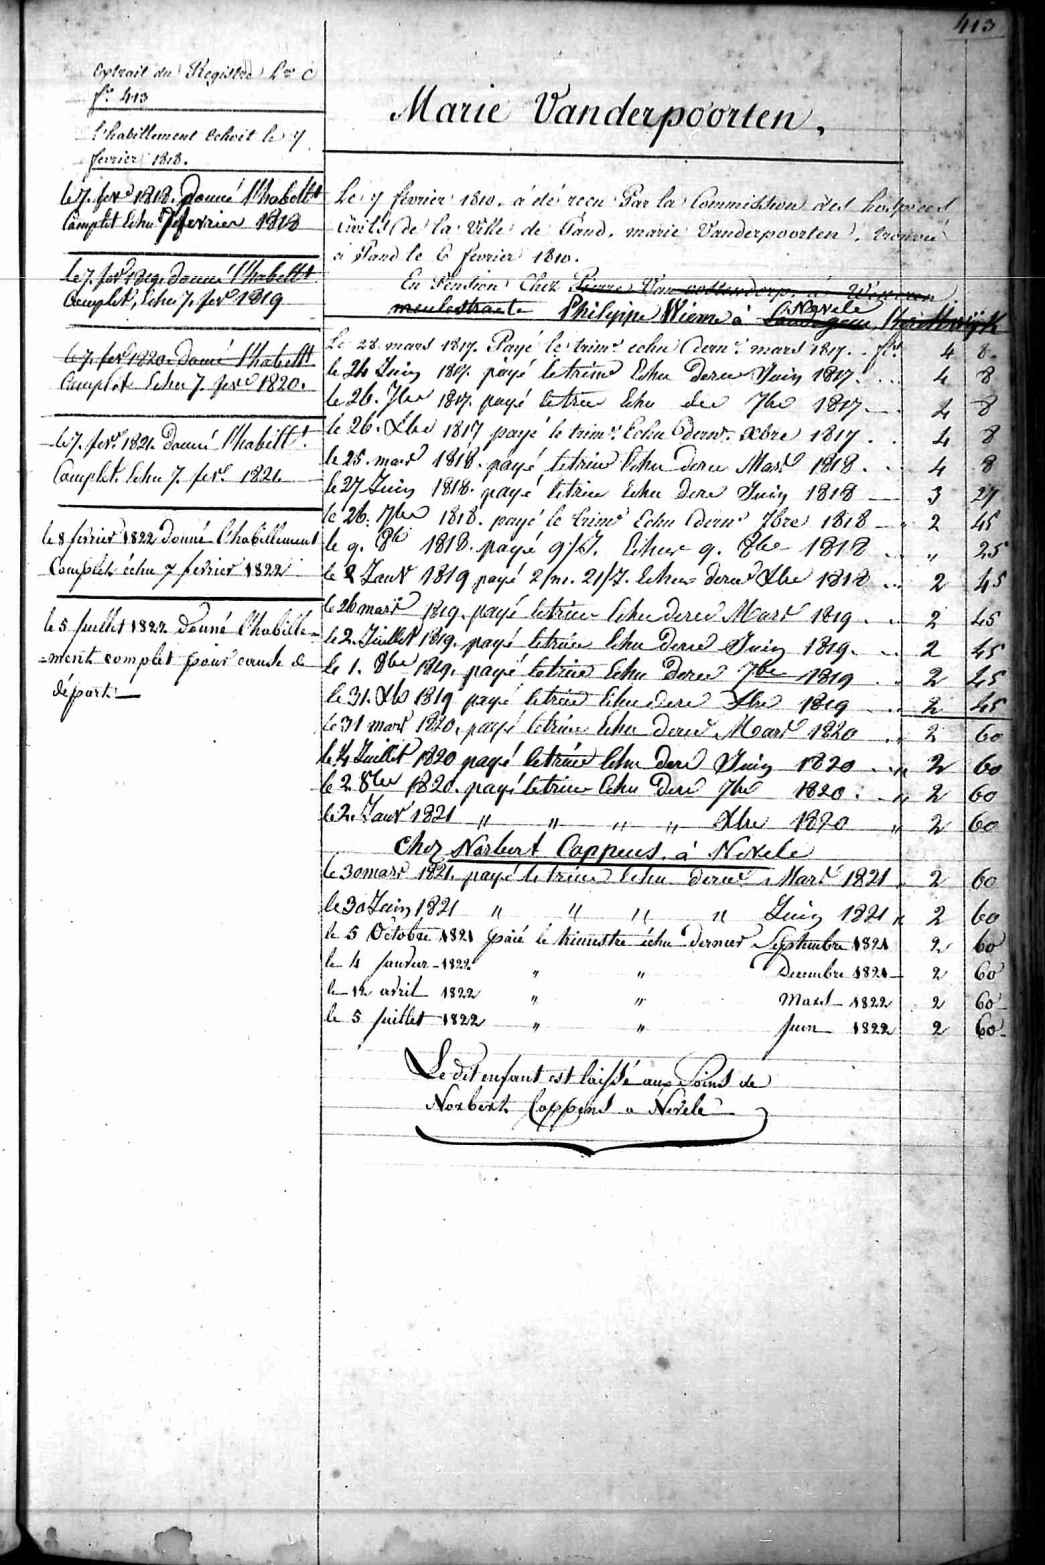 413
Extrait du Registre Lre C
fo. 413
l'habillement echoit le 7
fevrier 1818.
le 7. fevr 1818. Donné l'habillt
Complet Echu 7 fevrier 1818
le 7. fevr 1819. Donné l'habillt
Complet, Echu 7. fevr 1819
le 7. fevr 1820. Donné l'habillt
Complet Echu 7. fevr 1820.
le 7. fevr 1821 Donné l'habillt.
Complet. Echu 7. fevr 1821
le 8 fevrier 1822 Donné l'habillement
Complet échu 7 fevrier 1822
le 5 Juillet 1822 Donné l'habille-
-ment complet pour cause de
départ.
Marie Vanderpoorten,
Le 7 fevrier 1810. a été recu Par la Commission des hospices
civils de la Ville de Gand. marie Vanderpoorten, trouvée
à Gand le 6 fevrier 1810.
En Pension Chez Pierre Van
meulestraete Philippe Wieme à Nevele
Le 28 mars 1817. Payé le trimr echu dernr mars 1817. frs 4 8.
le 24 Juin 1817. payé le trimr Echu dernr Juin 1817. 4 8
le 26. 7bre 1817. payé le trimr Echu der 7bre 1817. 4 8
le 26. Xbre 1817 payé le trimr. Echu dernr. Xbre 1817. 4 8
le 25. mars 1818. payé le trimr Echu dernr Mars 1818. 4 8
le 27 Juin 1818. payé le trimr Echu dernr Juin 1818 3 27
le 26. 7bre 1818. payé le trimr Echu dernr 7bre 1818 " 2 45
le 9. 8bre 1818. payé 9/J. Echus 9. 8bre 1818 " 25
le 2 Janvr 1819 payé 2/m. 21/J. Echus dernr Xbre 1818 2 45
le 26 mars 1819. payé le trimr Echu dernr Mars 1819. 2 45
le 2. Juillet 1819. payé le trimr Echu dernr Juin 1819. 2 45
le 1. 8bre 1819. payé le trimr Echu dernr 7bre 1819 2 45
le 31. Xbre 1819 payé le trimr Echu dernr Xbre 1819 2 45
le 31 mars 1820. payé le trimr Echu dernr Mars 1820 2 60
le 4 Juillet 1820 payé le trimr Echu dernr Juin 1820 " 2 60
le 2 8bre 1820. payé le trimr Echu dernr 7bre 1820. " 2 60
le 2. Janvr 1821 " " " " Xbre 1820 " 2 60
Chez Norbert Cappens. à Nevele
le 30 mars 1821. payé le trimr Echu dernr Mars 1821 2 60
le 30 Juin 1821 " " " " Juin 1821 " 2 60
le 5 Octobre 1821 paié le trimestre échu dernier Septembre 1821 2 60
le 4 Janvier 1822 " " Decembre 1821 2 60
le 12 avril 1822 " " Mars 1822 2 60
le 5 Juillet 1822 " " Juin 1822 2 60
Le dit enfant est laissé aux Soins de
Norbert Cappens a Nevele